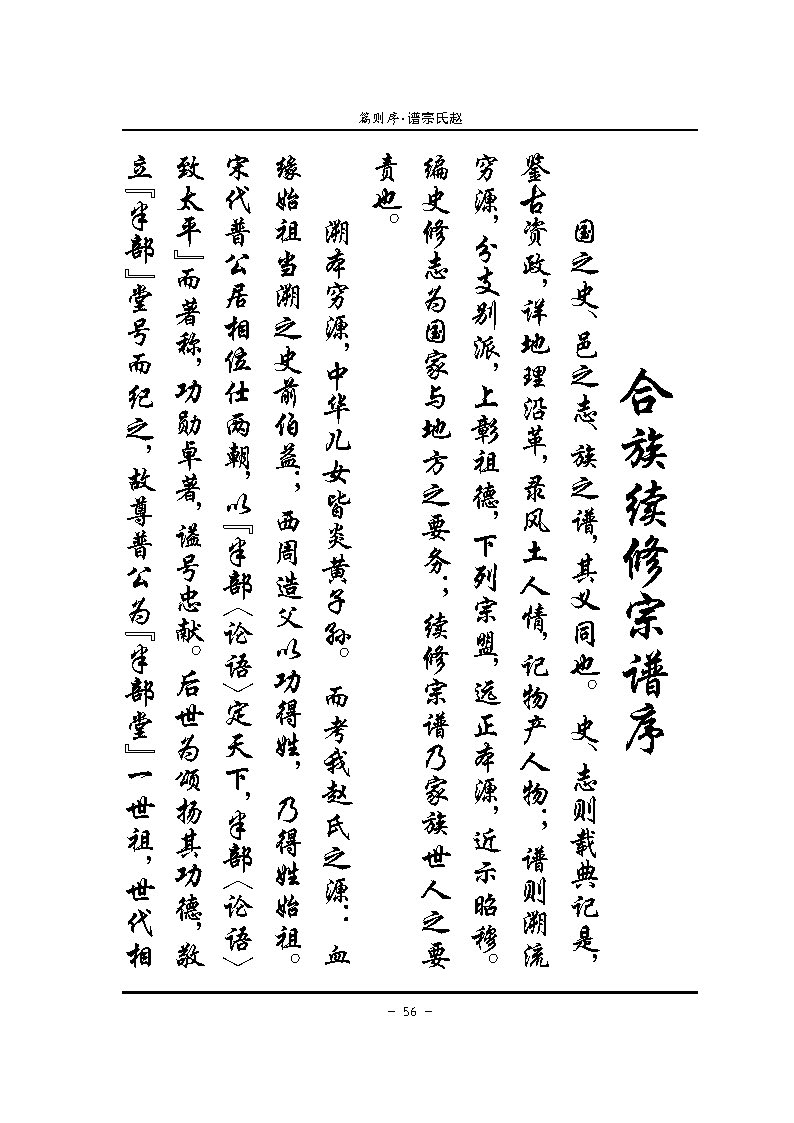 篇则序·谱宗氏赵
合族续修宗谱序
国之史、邑之志、族之谱，其义同也。史、志则载典记是，
鉴古资政，详地理沿革，录风土人情，记物产人物；谱则溯流
穷源，分支别派，上彰祖德，下列宗盟，远正本源，近示昭穆。
编史修志为国家与地方之要务；续修宗谱乃家族世人之要
责也。
溯本穷源，中华儿女皆炎黄子孙。而考我赵氏之源：血
缘始祖当溯之史前伯益；西周造父以功得姓，乃得姓始祖。
宋代普公居相位仕两朝，以『半部〈论语〉定天下，半部〈论语〉
致太平』而著称，功勋卓著，谥号忠献。后世为颂扬其功德，敬
立『半部』堂号而纪之，故尊普公为『半部堂』一世祖，世代相
- 56 -